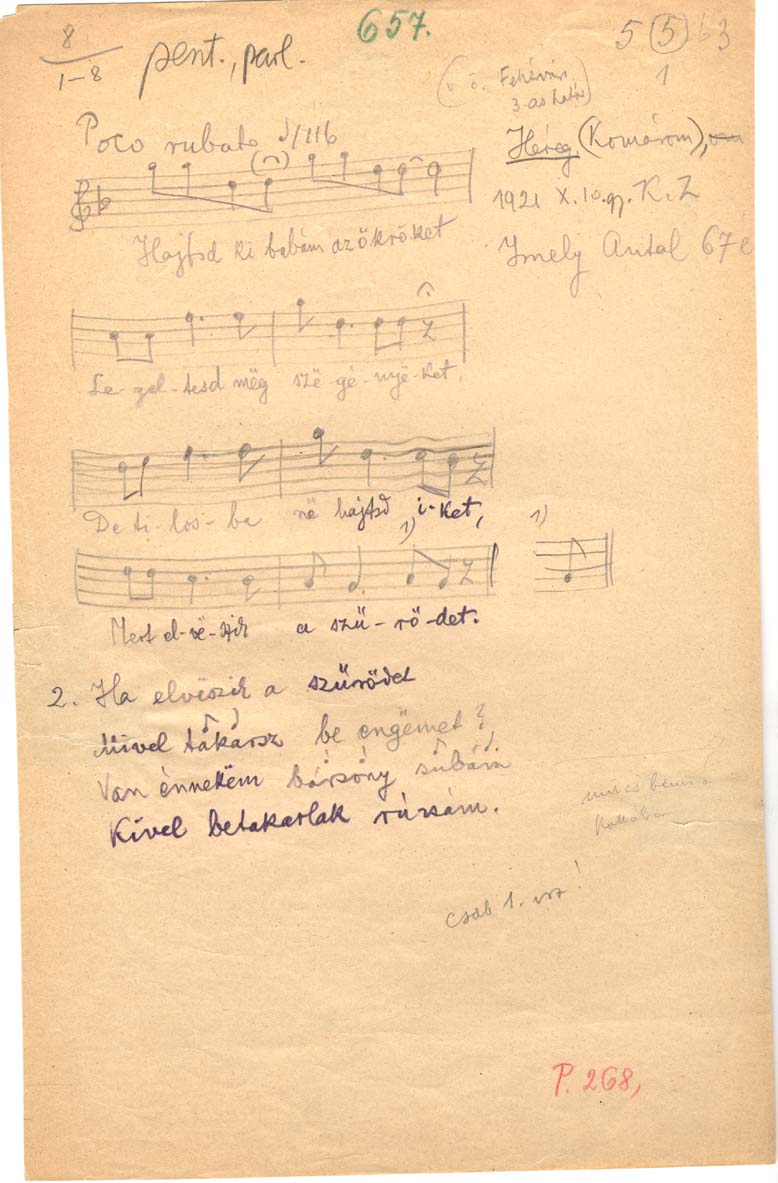 657.
8
1-8
pent., parl.
5 5 63
1
Fehérvári
3-as
Poco rubato ♩/116
Héreg (Komárom),
1921 X. 10. gy. K. Z
Imely Antal 67 é
Hajtsd ki babám az ökröket
Le-gel-tesd mëg szë-gé-nyë-ket,
De ti-los-ba në hajtsd i-ket,
1) 1)
Mert el-vë-szik a szü-rö-det.
2. Ha elvëszik a szürödet
Mivel takarsz be engëmet?
Van énnekëm bársony subám
Kivel betakarlak rúzsám.
nincs benne
csak 1. vsz!
P. 268,